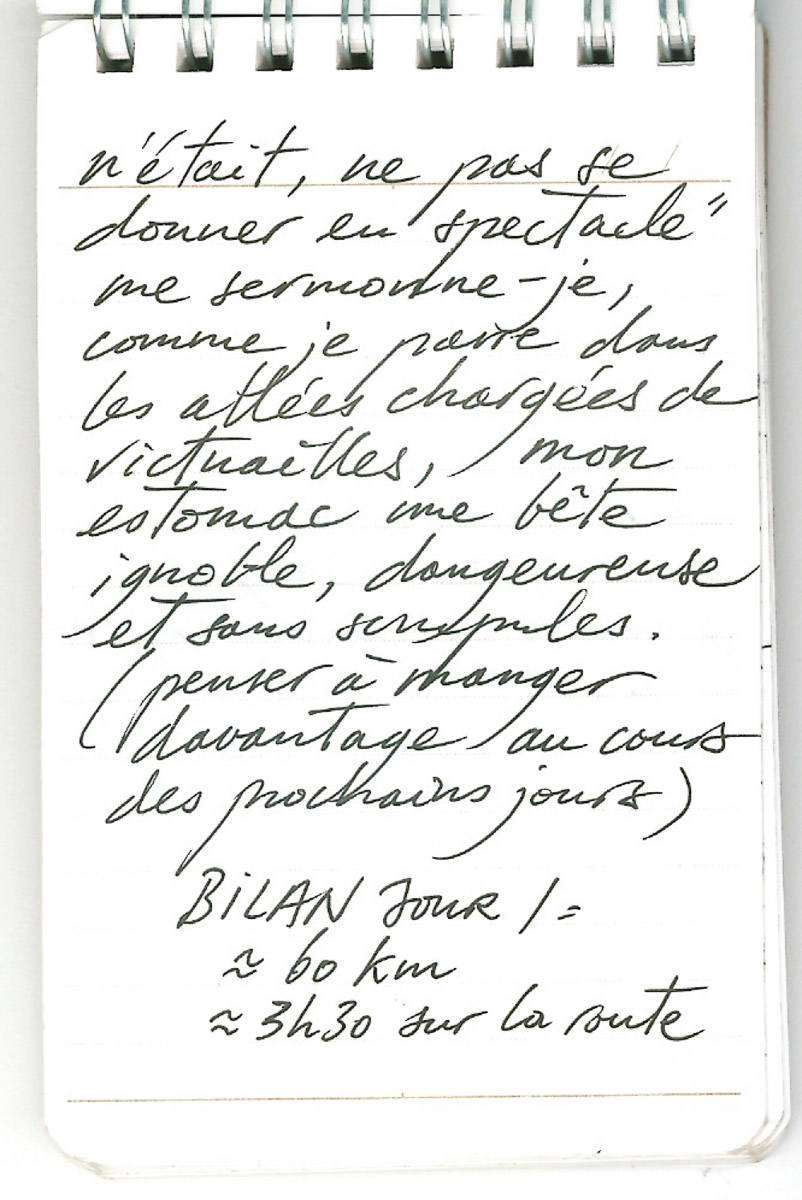 n'était, ne pas se
donner en spectacle"
me sermonne-je,
comme je passe dans
les allées chargées de
victuailles, mon
estomac une bête
ignoble, dangeureuse
et sans scrupules.
(penser à manger
davantage au cours
des prochains jours)
BILAN JOUR 1=
≈ 60 km
≈ 3h30 sur la route